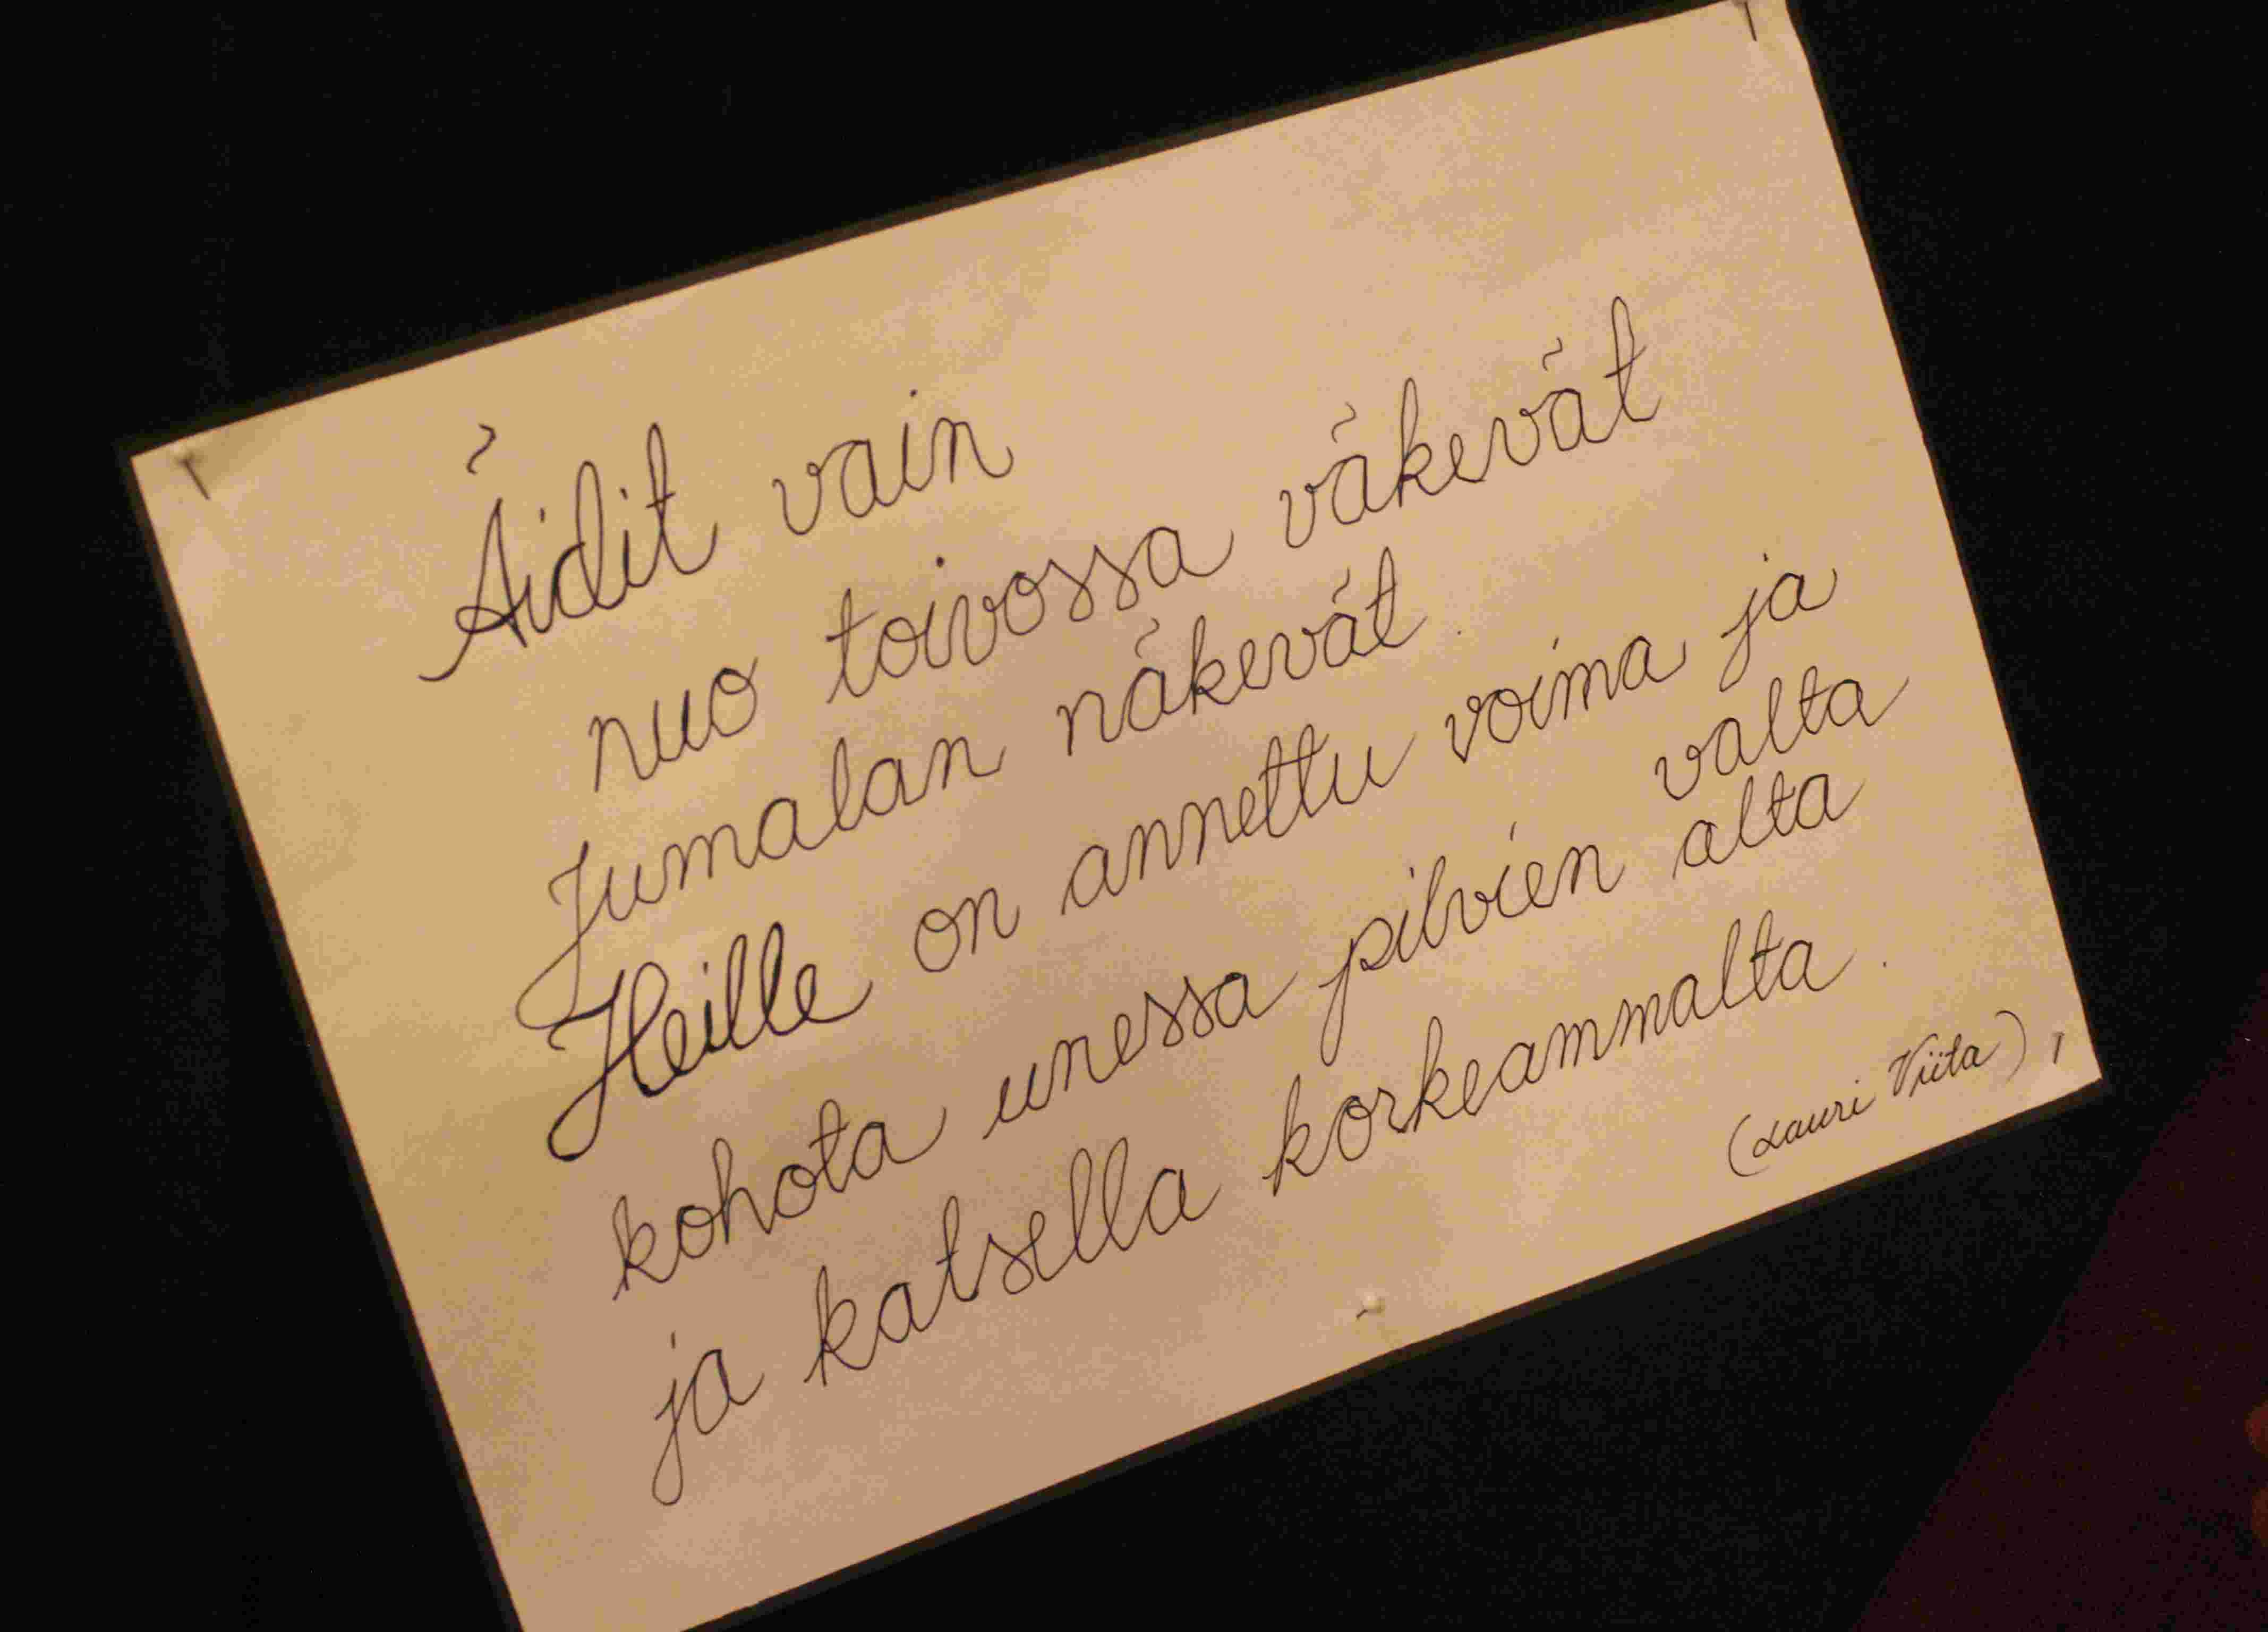 Äidit vain
nuo toivossa väkevät
Jumalan näkevät.
Heille on annettu voima ja
valta
kohota unessa pilvien alta
ja katsella korkeammalta.
(Lauri Viita)